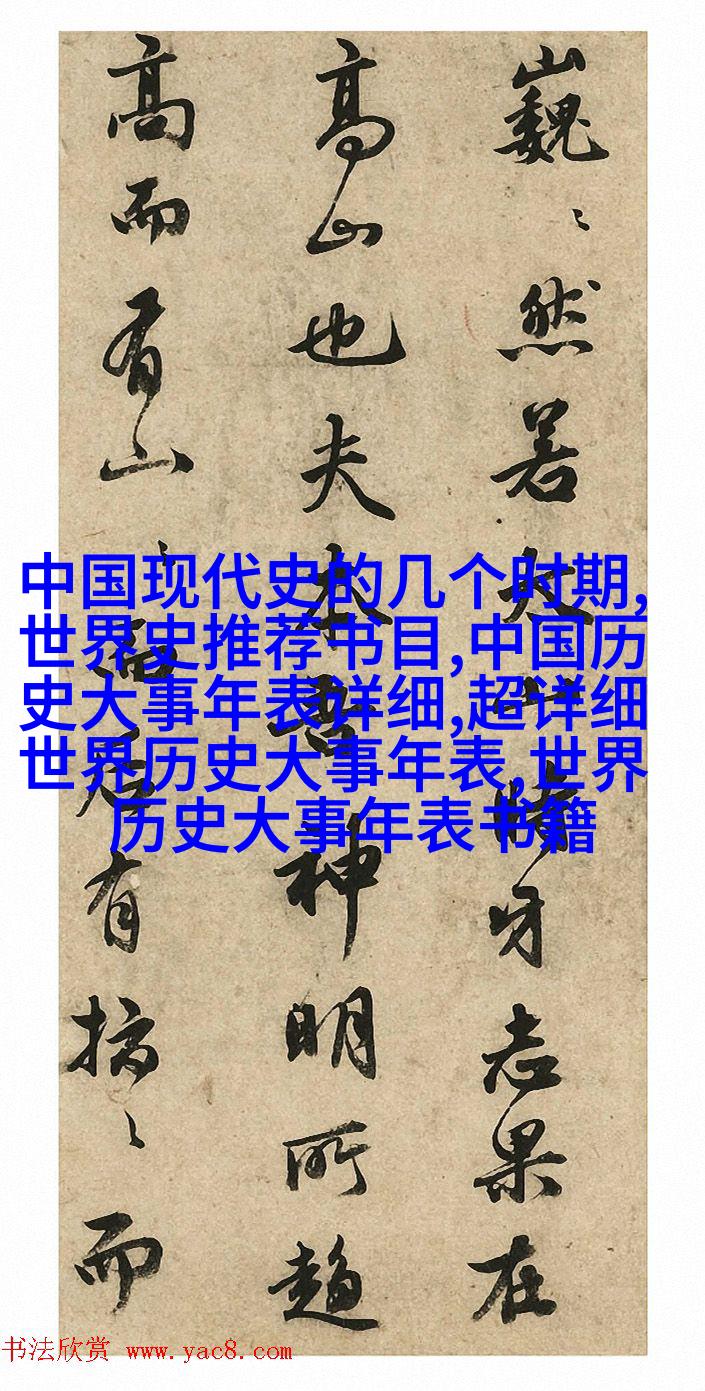 巍〻然若大山時牙志果在
高山也夫本吾神明所趨
高而有山〻而石有搞〻而
中国现代史的几个时期,
世界史推荐书目,中国历
史大事年表详细,超详细
世界历史大事年表,世界
历史大事年表书籍
书法欣赏 www.yac8.com